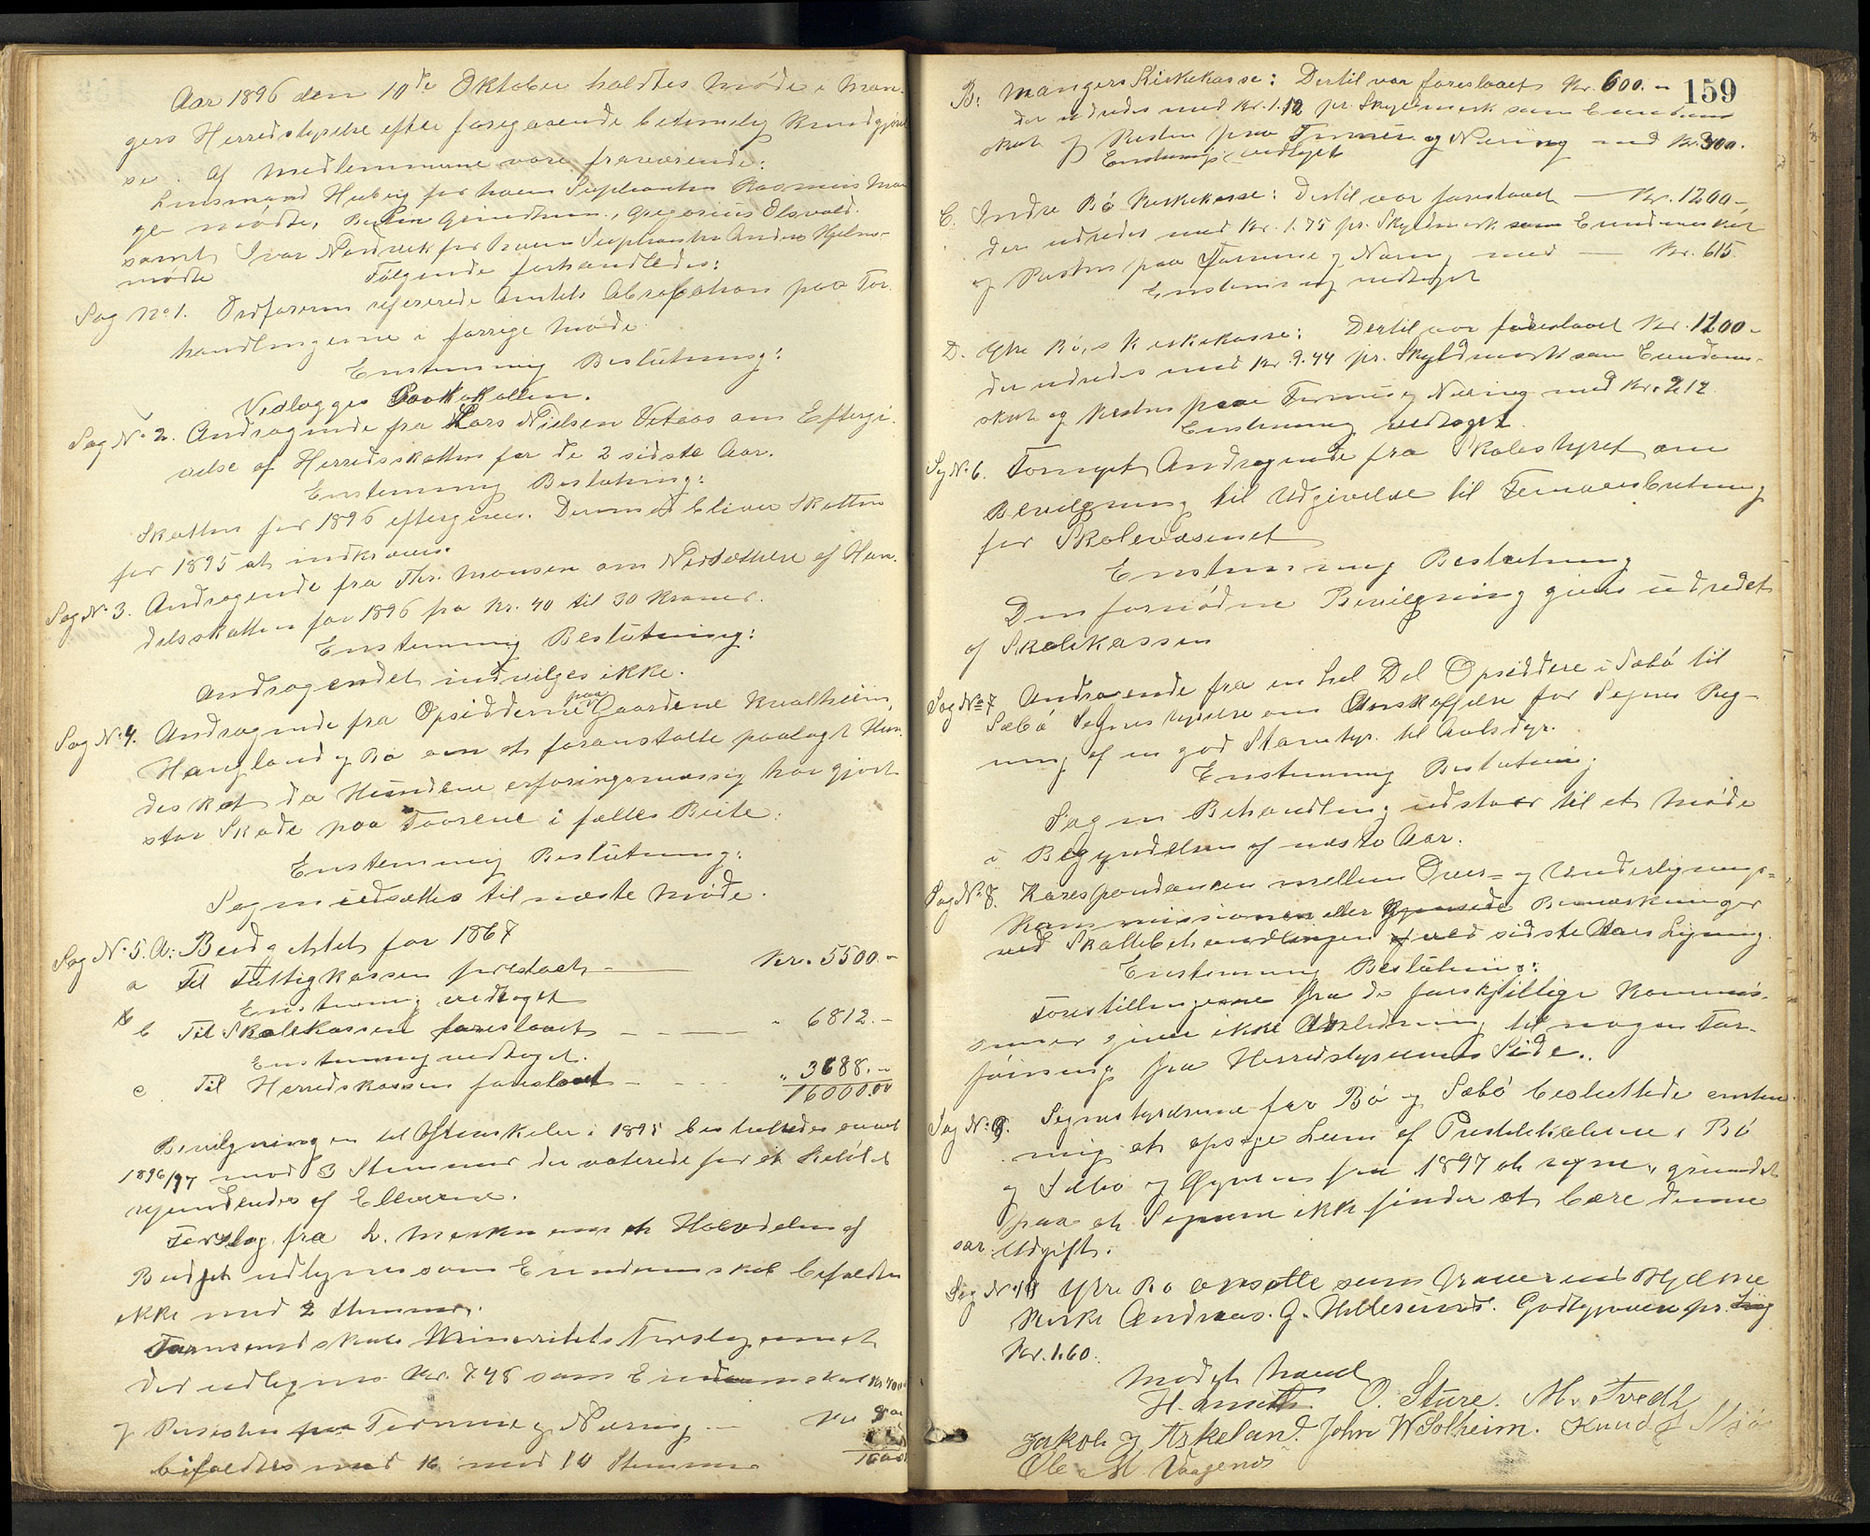 Aar 1896 den 10de Oktober holdtes Møde i Man-
gers Herredstyrelse efter foregaaende betimelig Kundgjørel
se. Af Medlemmerne vare fraværende:
Lensmand Huberg for hvem Suplianten Rasmus Man
ger mødte, Gregorius Olsvold.
samt Ivar Nordvik for hvem Suplianten Anders Hjelme
mødte
Følgende forhandledes:
Sag No 1. Ordføreren refererede Amtets Aprobation paa For
handlingerne i forrige Møde.
Enstemmig Beslutning:
Vedlægges Protokollen.
Sag No 2. Andragende fra Lars Nielsen Vetaas om Eftergi-
velse af Herredsskatten for de 2 sidste Aar.
Enstemmig Beslutning:
Skatten for 1896 eftergives. Derimod bliver Skatten
for 1895 at indkræve.
Sag No 3. Andragende fra Thr. Monsen om Nedsættelse af Han-
delsskatten for 1896 fra Kr. 40 til 30 Kroner.
Enstemmig Beslutning:
Andragendet indvilges ikke.
Sag No 4. Andragende fra Opsidderne paa Gaardene Kvalheim,
Haugland og Bø om at foranstalte paalagt Hun-
deskat da Hundene erfaringsmæssig har gjort
stor Skade paa Faarene i fælles Beite.
Enstemmig Beslutning:
Sagen udsættes til næste Møde.
Sag No 5. A: Budgettet for 1867
a Til Fattigkassen foreslaaet - Kr. 5500.-
Enstemmig vedtaget
b Til Skolekassen foreslaaet - - " 6812.-
Enstemmig vedtaget.
c Til Herredskassen foreslaaet - - - " 3688.-
16000.00
Bevilgningen til i 1895 besluttedes
1896/97 mod 3 Stemmer der voterede for et Beløb
af Eleverne.
Forslag fra L. om at Halvdelen af
Budget udlignes som Eiendomsskat bifaldtes
ikke med 2 Stemmer.
Minoritets Forslag om at
der udlignes Kr. 7.48 som Eiendomsskat
og Resten paa Formue og Næring -
bifaldtes med 10 Stemmer
159
B: Mangers Kirkekasse: Dertil var foreslaaet Kr. 600.-
der udredes med Kr. 1.12 pr. Skyldmark som Eiendoms
skat og Resten paa Formue og Næring med Kr. 300.
Enstemmig vedtaget
C. Indre Bø Kirkekasse: Dertil var foreslaaet — Kr. 1200-
der udredes med Kr. 1.75 pr. Skyldmark som Eiendomsskat
og Resten paa Formue og Næring med — Kr. 615.
Enstemmig vedtaget
D. Ytre Bø,s Kirkekasse: Dertil var foreslaaet Kr. 1200-
der udredes med Kr. 9.44 pr. Skyldmark som Eiendoms-
skat og Resten paa Formue og Næring med Kr. 212
Enstemmig vedtaget.
Sag No 6. Fornyet Andragende fra Skolestyret om
Bevilgning til Udgivelse til
for Skolevæsenet
Enstemmig Beslutning
Den fornødne Bevilgning gives udredet
af Skolekassen
Sag No 7 Andragende fra en hel Del Opsiddere i Sæbø til
Sæbø Sognestyrelse om Anskaffelse for Sognets Reg-
ning af en god Stamtyr til Avlsdyr.
Enstemmig Beslutning
Sagens Behandling udstaar til et Møde
i Begyndelsen af næste Aar.
Sag No 8. Korespondancen mellem Over- og Underlignings-
kommissionen eller Bemærkninger
ved Skattebehandlingen ved sidste Aars Ligning.
Enstemmig Beslutning:
Forestillingerne fra de forskjellige Kommis-
sioner giver ikke Anledning til nogen For-
føining fra Herredstyrelsens Side.
Sag No 9. Sognestyrelserne for Bø og Sæbø besluttede enstem
mig at opsige Leien af Præstekalderne i Bø
og Sæbø og fra 1897 at regne, grundet
paa at Sognene ikke finder at bære denne
Udgift.
Sag No 10 Ytre Bø ansatte som Graver ved Hjelme
Kirke Andreas G. Hellesund. Godtgjørelse pr. Lig
Kr. 1.60.
Mødet hævet
H. O. Sture. M. Tvedt
Jakob J Askeland. John W Solheim. Knud
Ole M Vaagenes